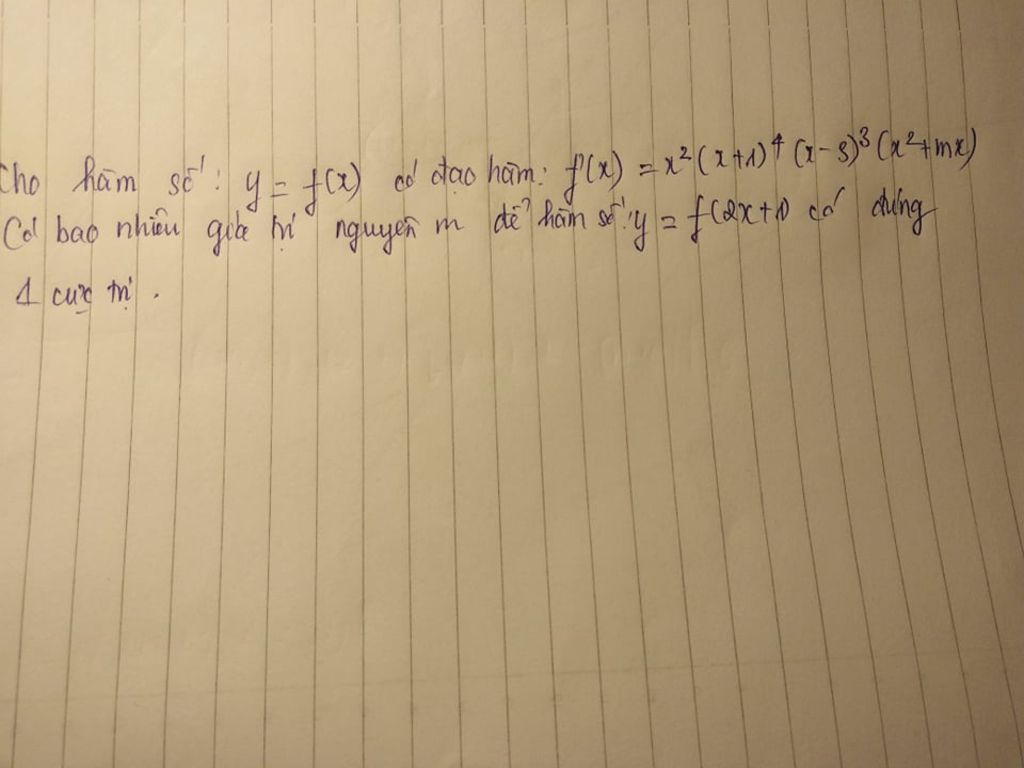 Cho hàm số: y = f(x) có đạo hàm: f'(x) = x²(x+1)⁴(x-3)³(x²+mx)
Có bao nhiêu giá trị nguyên m để hàm số: y = f(2x+1) có đúng
1 cực trị.